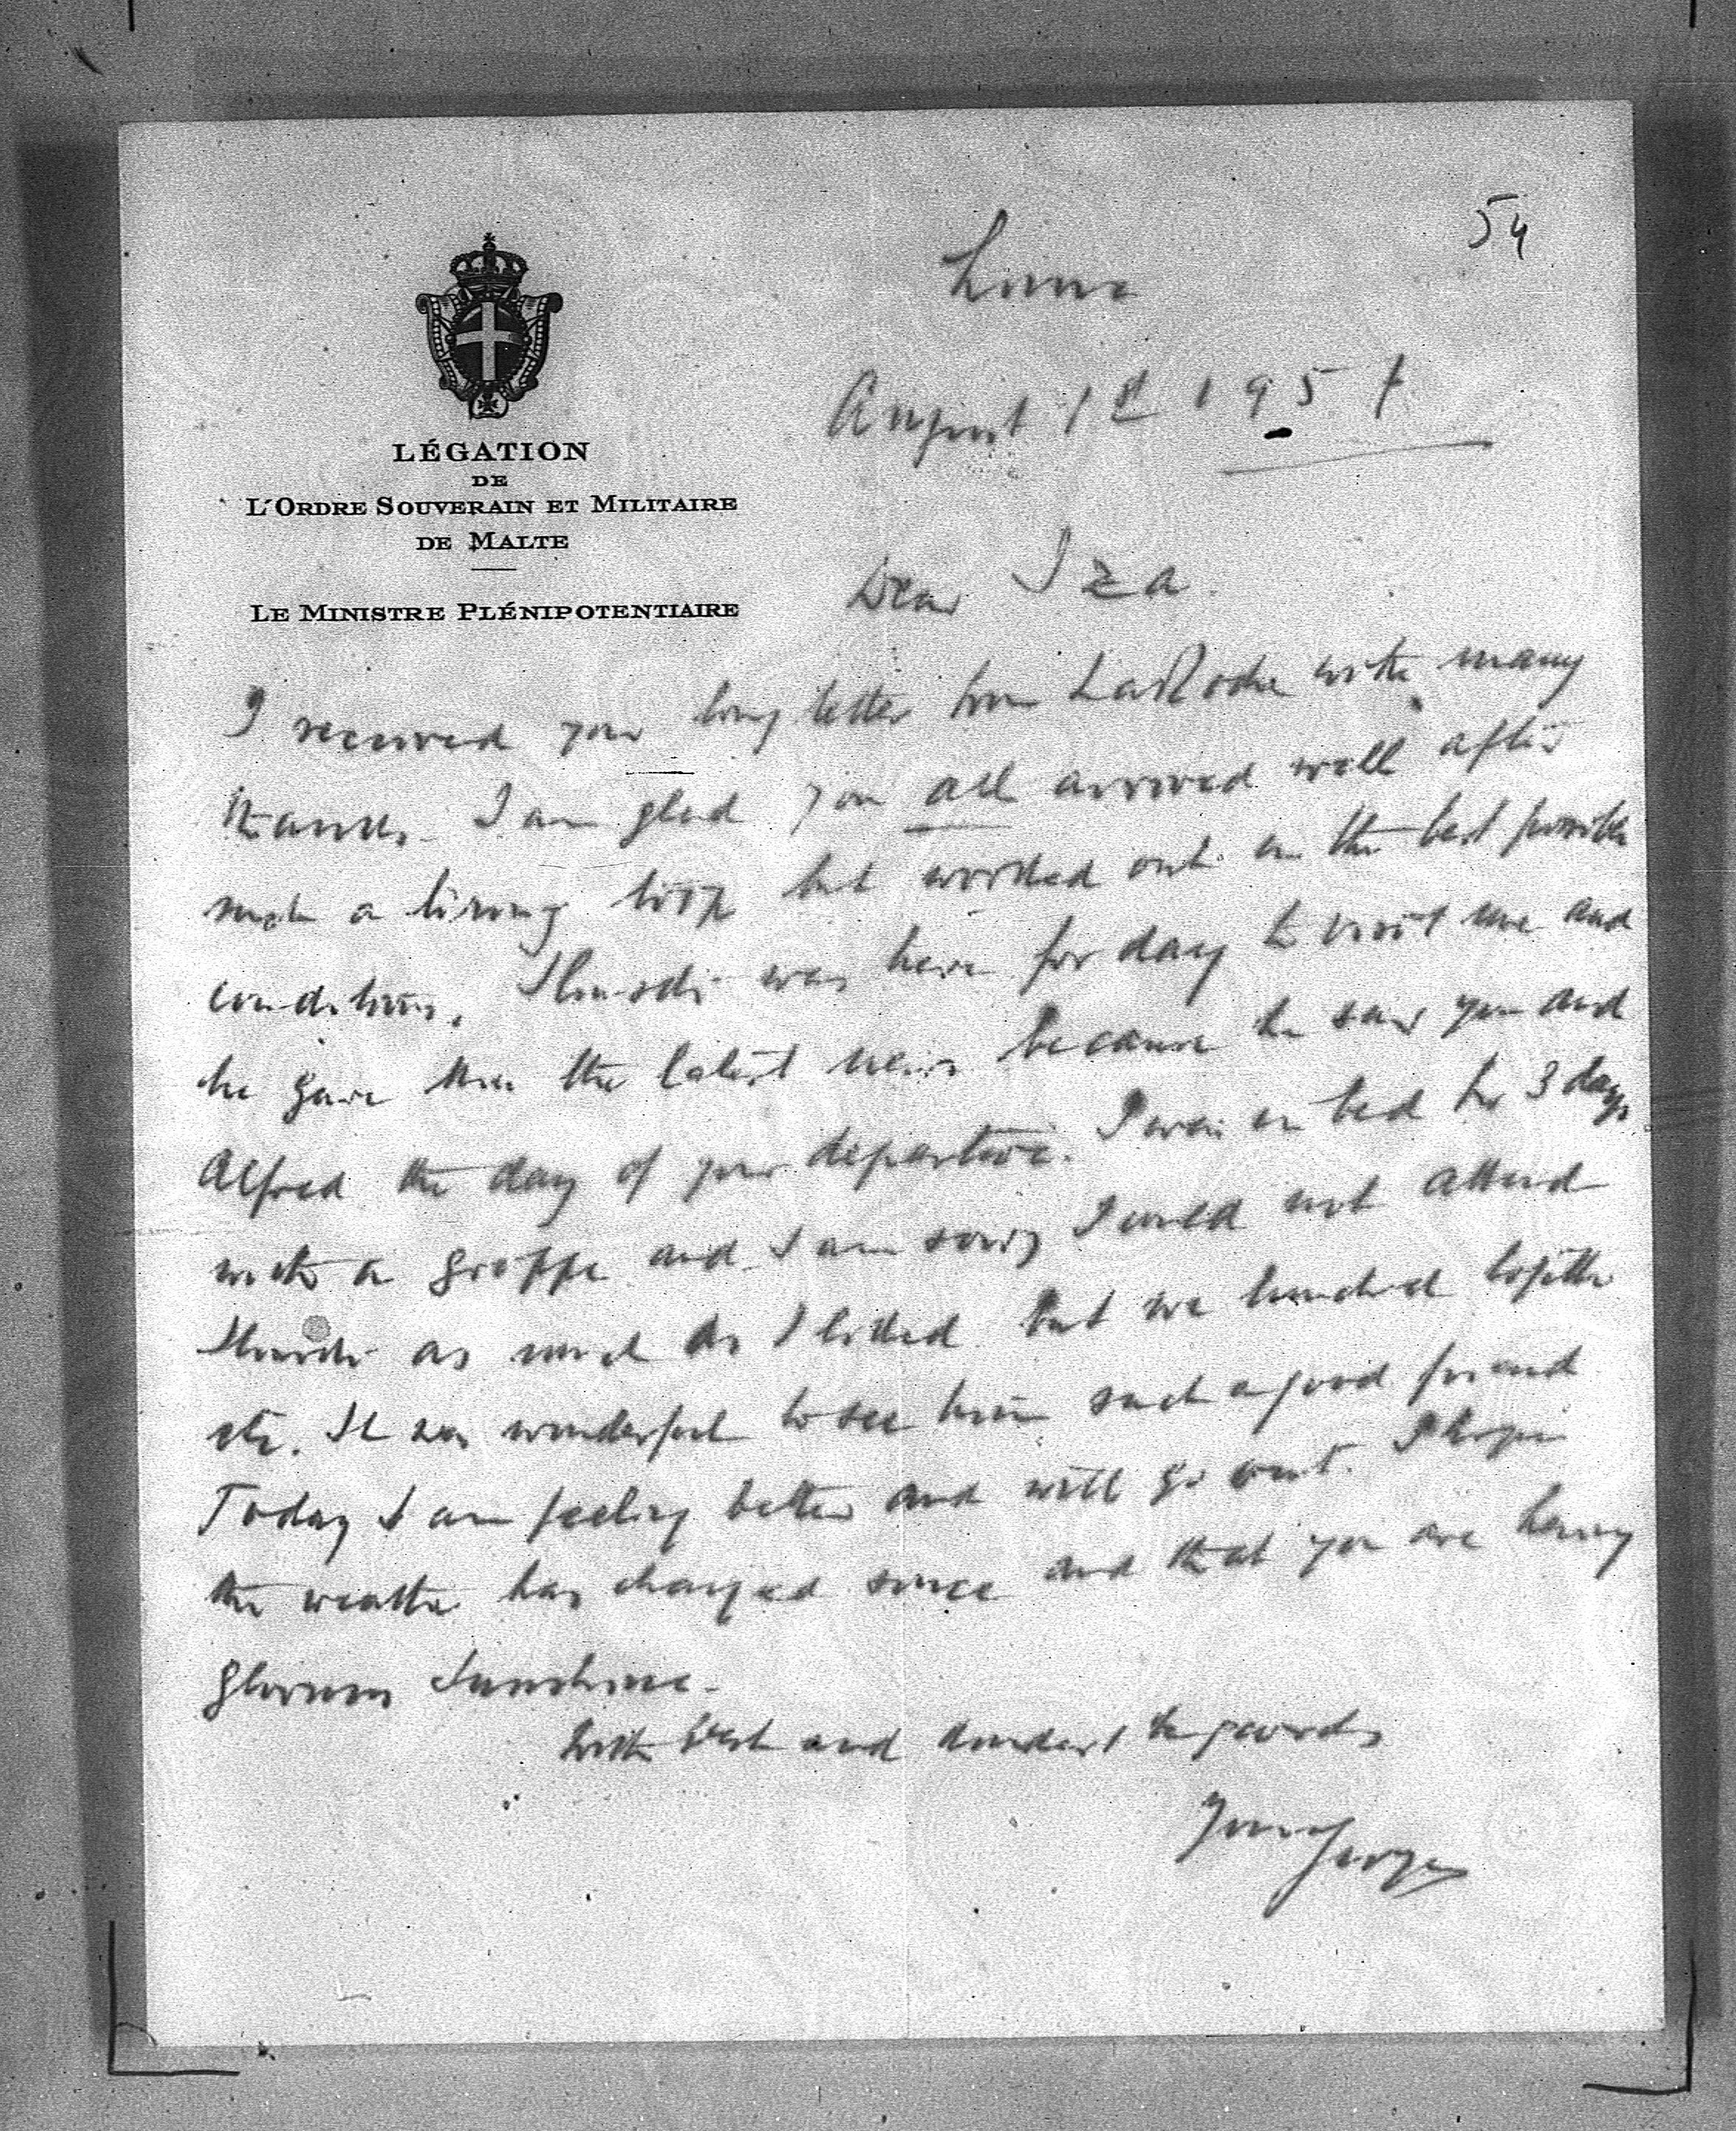 54
Lima
August 1st 1957
LÉGATION
DE
L'ORDRE SOUVERAIN ET MILITAIRE
DE MALTE
LE MINISTRE PLÉNIPOTENTIAIRE
Dear Iza
I received your long letter from LaRoche with many
thanks. I am glad you all arrived well after
such a tiring trip but worked out in the best possible
conditions. was here for day to visit me and
he gave me the latest news because he saw you and
Alfred the day of your departure. I was in bed for 3 days
with a grippe and I am sorry I could not attend
as much as I liked but we lunched together
etc. It was wonderful to see him such a good friend
Today I am feeling better and will go out. I hope
the weather has changed since and that you are having
glorious sunshine.
With best and kindest regards